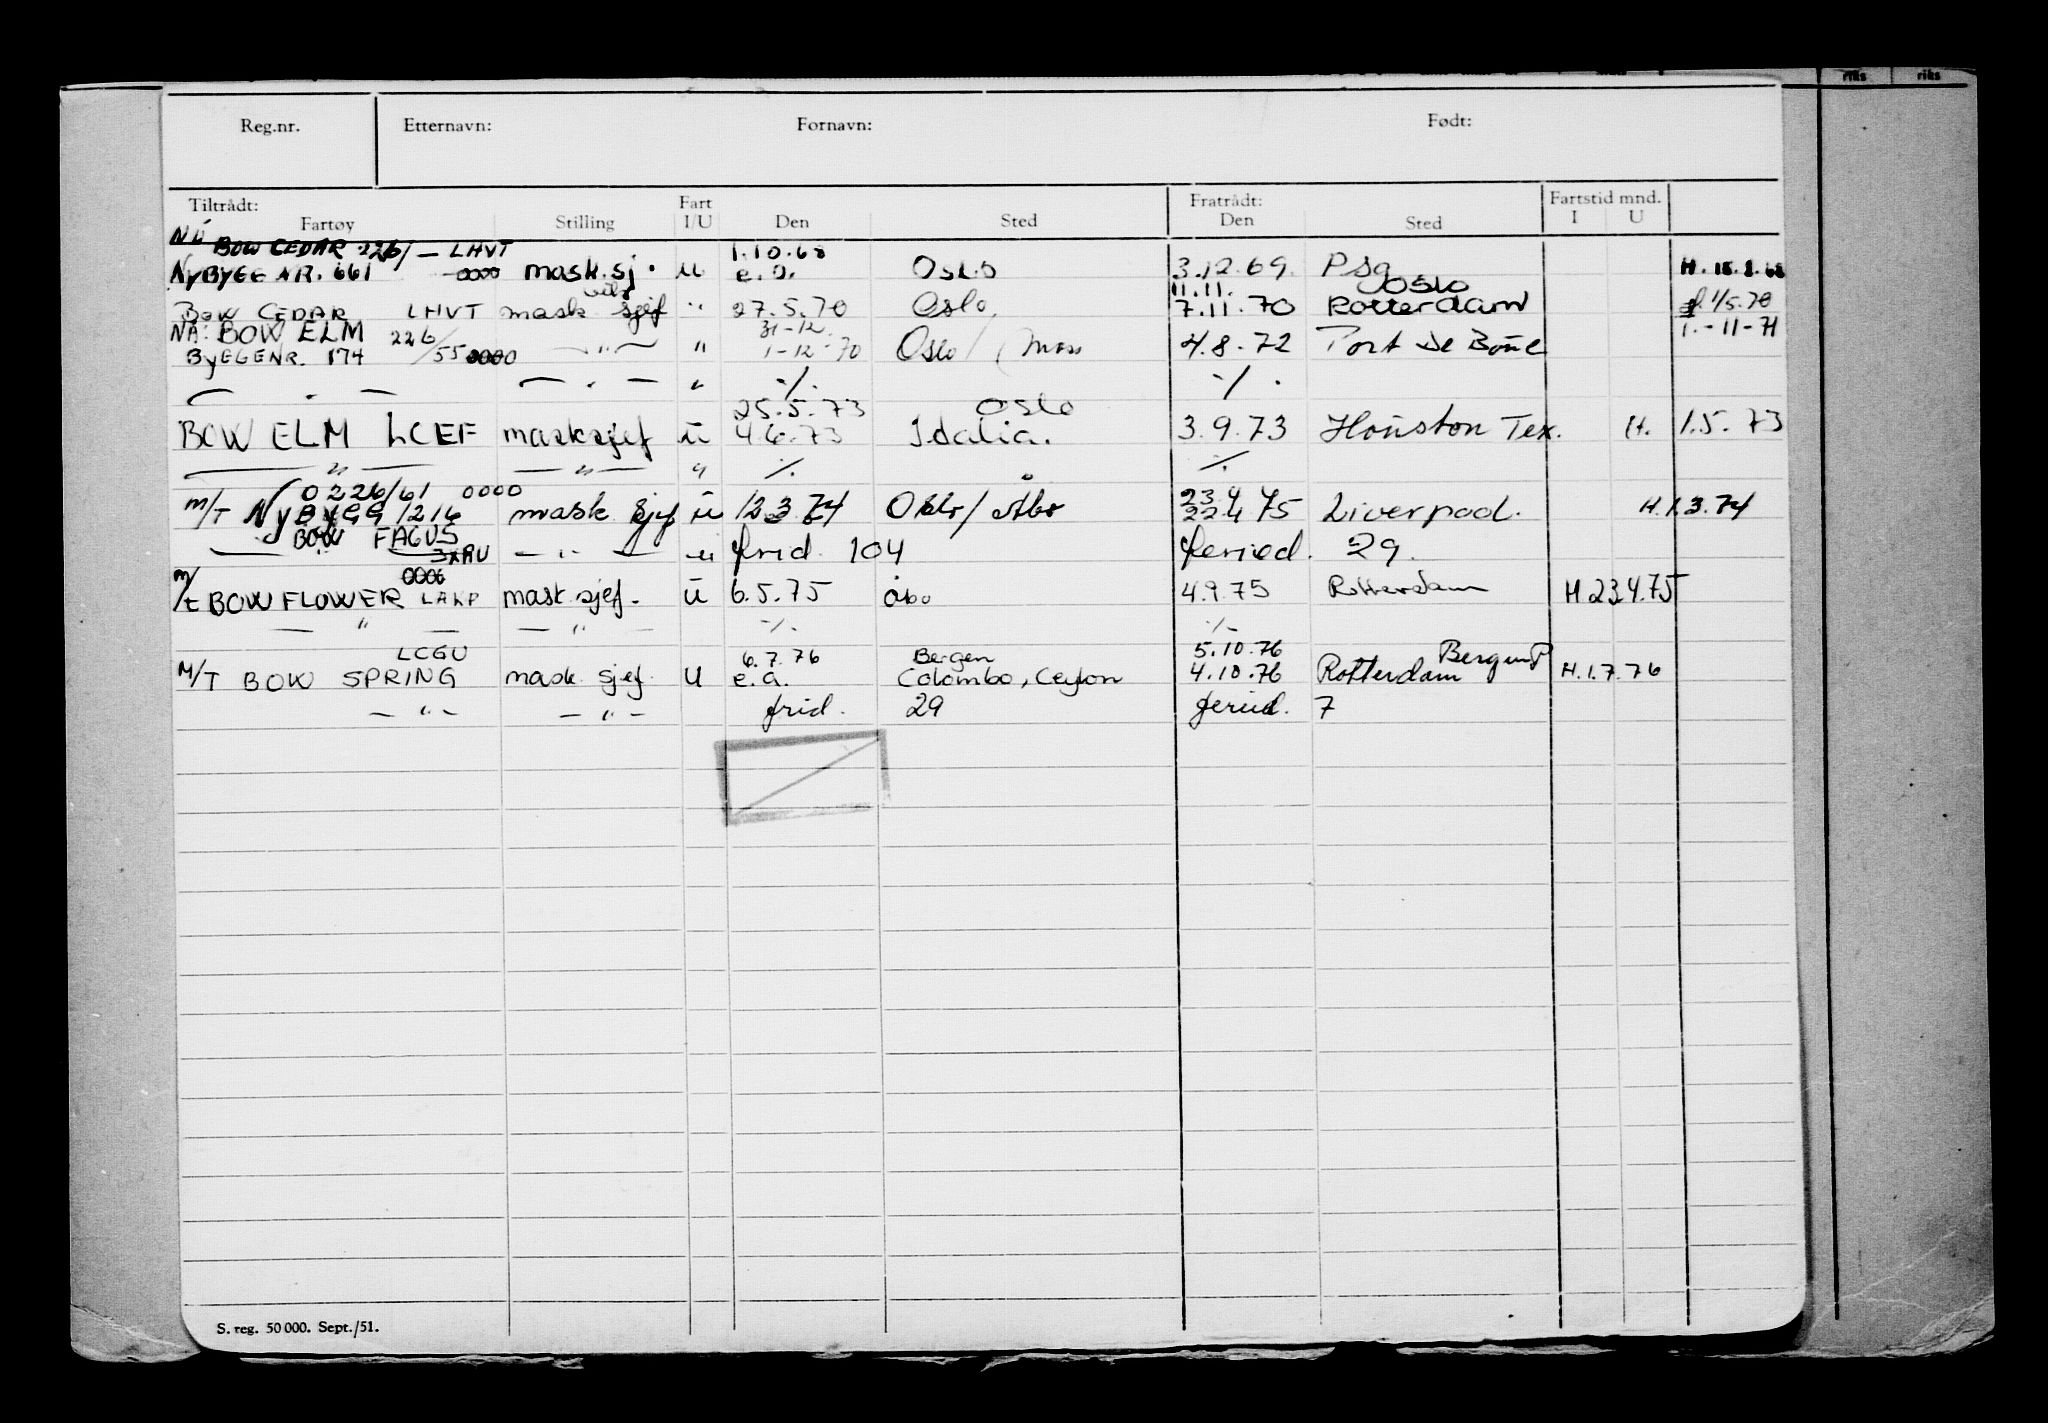 riks riks
Reg.nr. Etternavn: Fornavn: Født:
Tiltrådt: Fart Fratrådt: Fartstid mnd.
Fartøy Stilling I/U Den Sted Den Sted I U
NÅ BOW CEDAR 226/- LHVT 1.10.68
NYBYGG NR. 661 0000 mask.sj. u e.d. OSLO 3.12.69. Psg H. 15.8.68
11.11. OSLO
BOW CEDAR LHVT mask sjef " 27.5.70 Oslo. 7.11.70 Rotterdam 1/5.70
NÅ: BOW ELM 226 31-12. 1.-11-71
BYGGENR. 174 /55 0000 — " — " 1-12-70 Oslo / Moss 4.8.72 Port de Bouc
— " — — " — " ·/. ·/.
25.5.73 Oslo
BOW ELM LCEF mask sjef u 4.6.73 Idalia. 3.9.73 Houston Tex. H. 1.5.73
— " — — " — " ·/. ·/.
0226/61 0000 23
M/T NYBYGG 1216 mask. sjef u 12.3.74 Oslo/Åbo 22.4.75 Liverpool. H.1.3.74
BOW FAGUS
— " — — " — u frid. 104 feried. 29.
0006
M/T BOW FLOWER LAKP mask.sjef. u 6.5.75 Åbo 4.9.75 Rotterdam H 23.4.75
— " — — " — ·/. ·/.
LCGU 6.7.76 Bergen 5.10.76 Bergen P
M/T BOW SPRING mask. sjef. U e.a. Colombo, Ceylon 4.10.76 Rotterdam H.1.7.76
— " — — " — frid. 29 feried. 7
S. reg. 50 000. Sept./51.